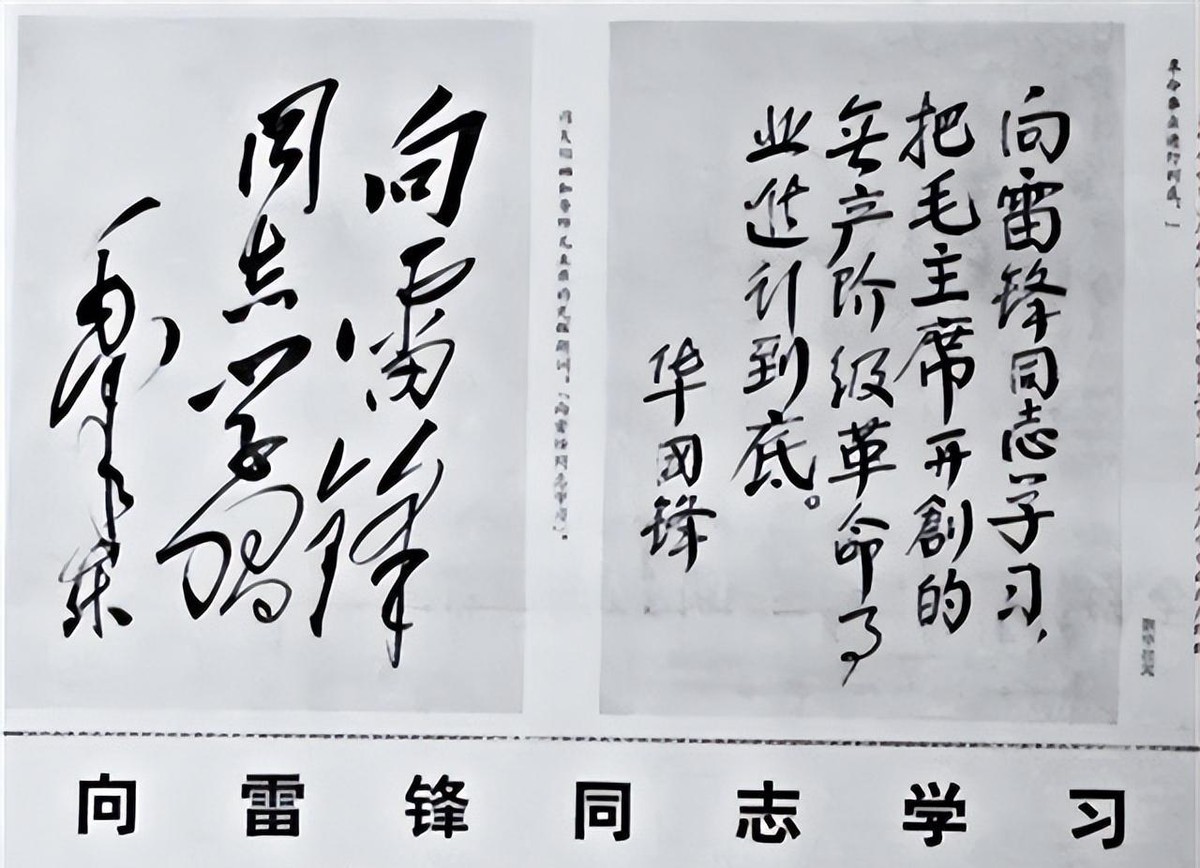 向雷锋同志学习，
把毛主席开創的
無产阶级革命事
业進行到底。
华国锋
向雷锋
同志学習
毛泽东
向雷锋同志学习